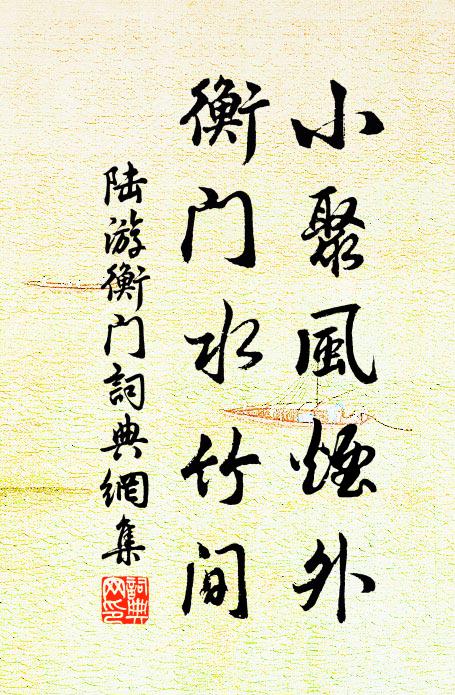 小聚風煙外
衡门水竹间
陆游衡门詞典網集
詞典网印